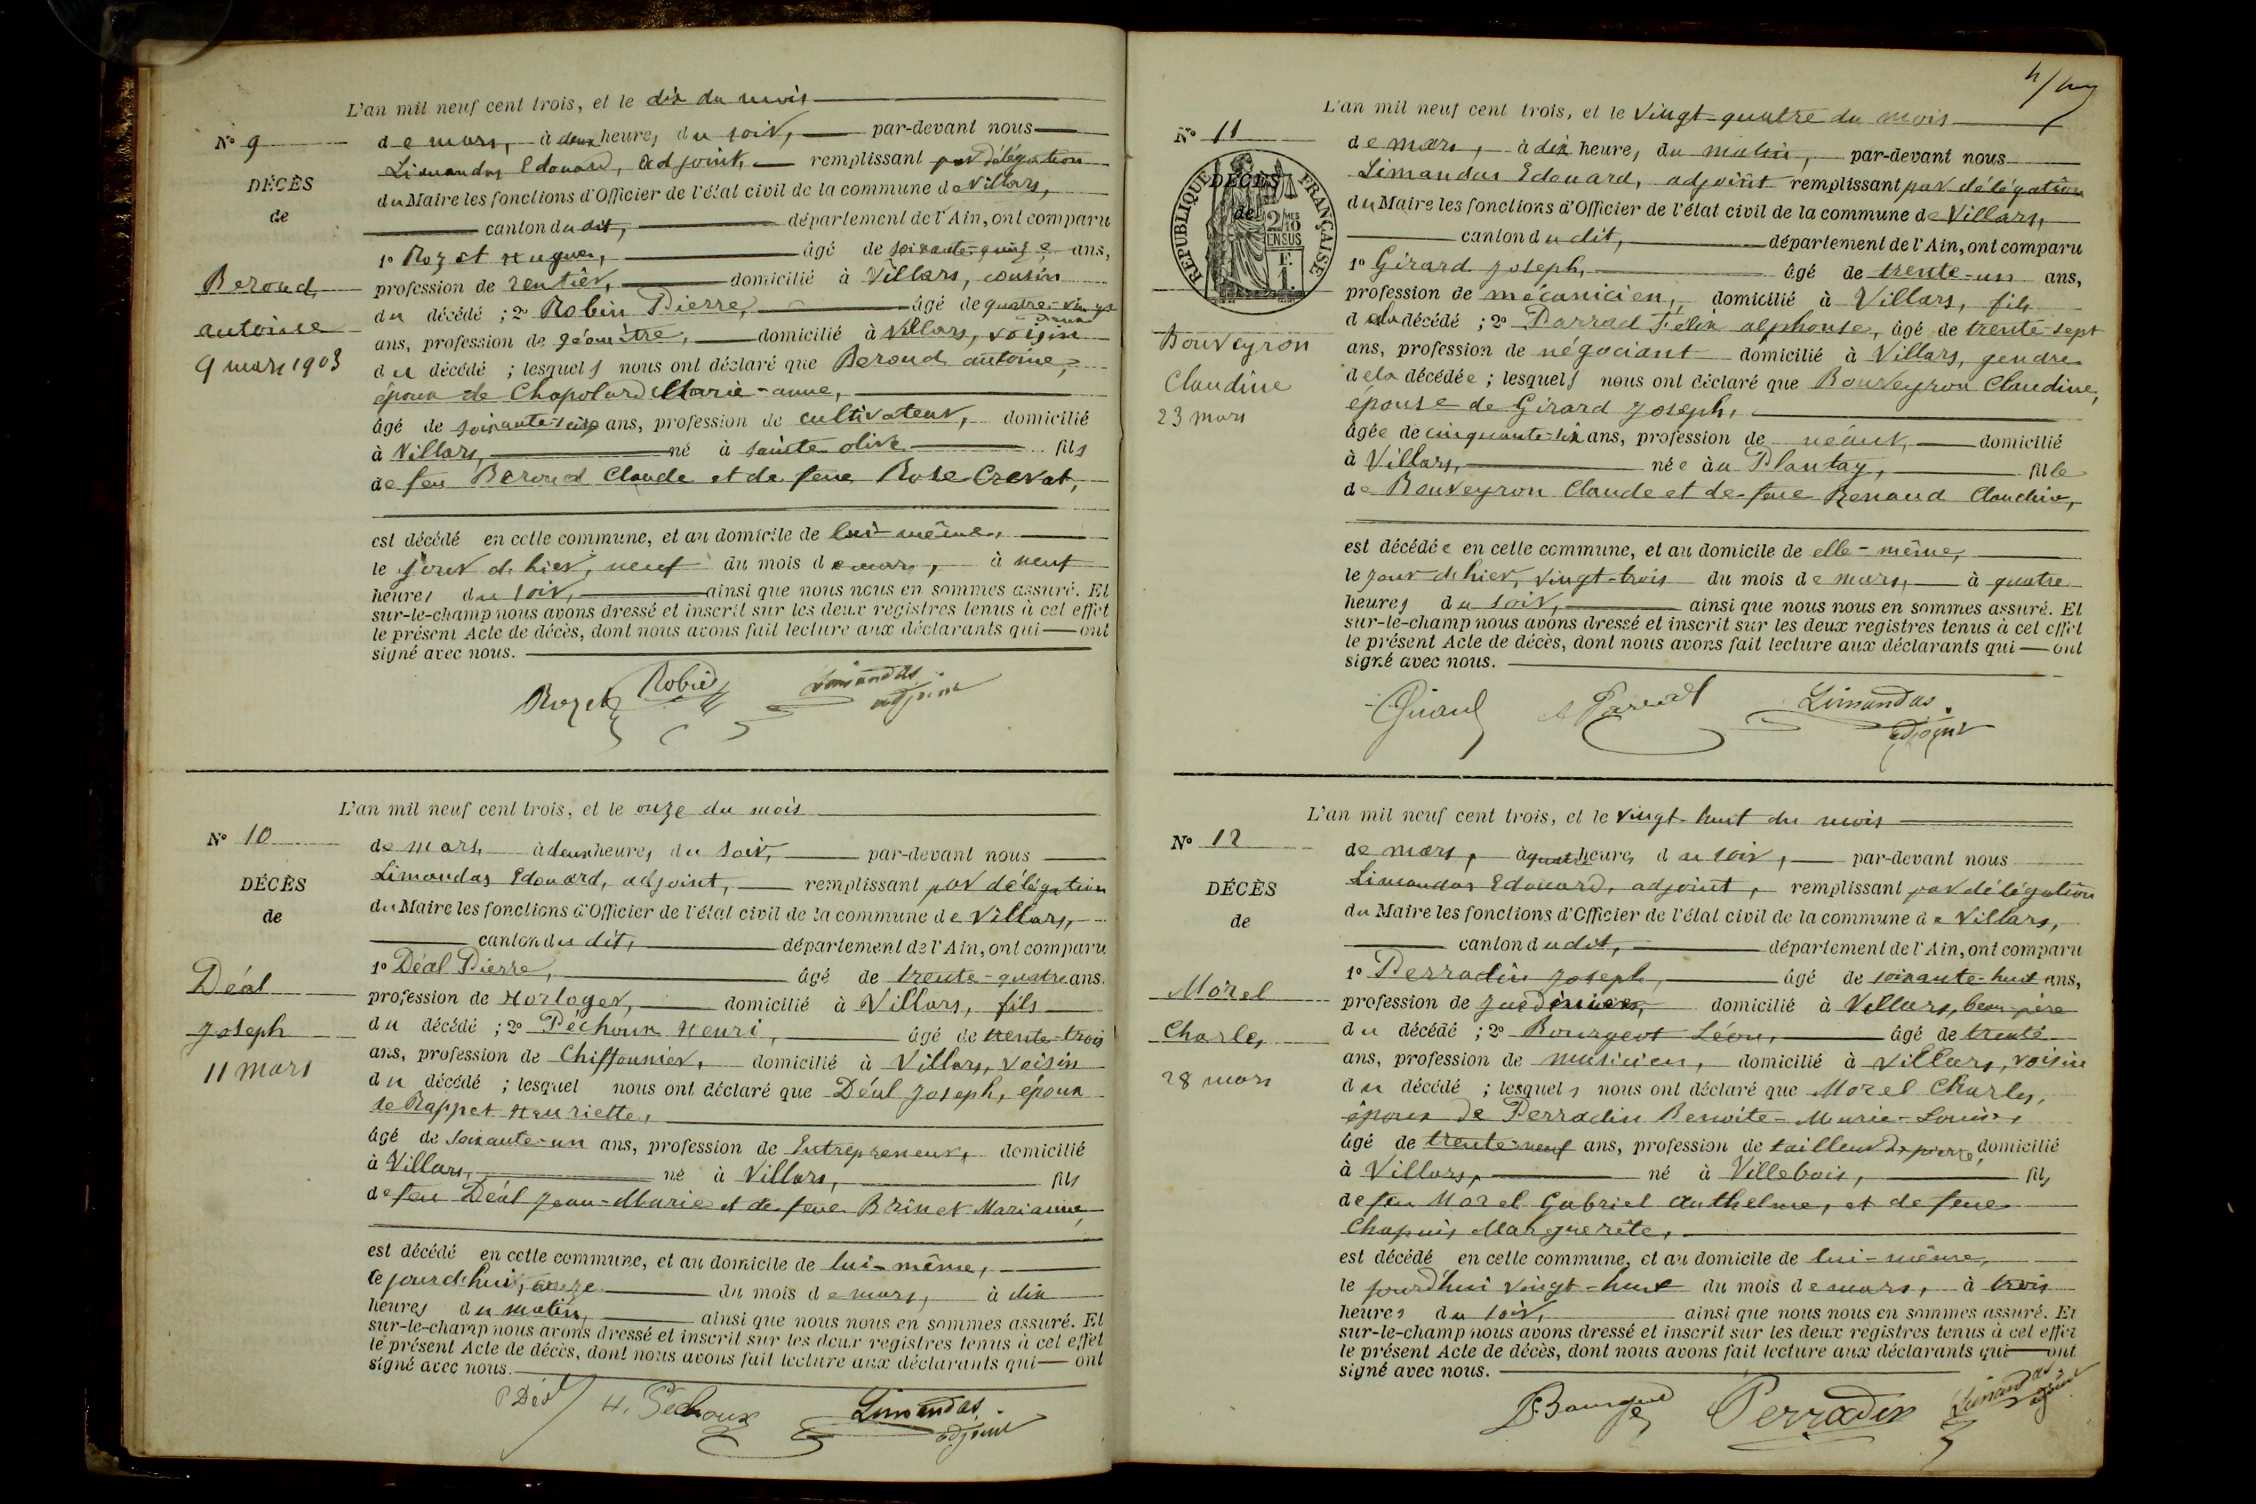 L'an mil neuf cent trois, et le dix du mois
N° 9
de mars, à deux heures du soir, par-devant nous
Limandas Edouard, adjoint, remplissant par délégation
DÉCÈS
du Maire les fonctions d'Officier de l'état civil de la commune de Villars,
de
canton dudit, département de l'Ain, ont comparu
1° Rozet Hugues, âgé de soixante-quinze ans,
Beroud
profession de rentier, domicilié à Villars, cousin
du décédé ; 2° Robin Pierre, âgé de quatre-vingt
antoine
ans, profession de géomètre, domicilié à Villars, voisin
9 mars 1903
du décédé ; lesquels nous ont déclaré que Beroud antoine,
époux de Chapolard Marie-anne,
âgé de soixante-seize ans, profession de cultivateur, domicilié
à Villars, né à Sainte olive fils
de feu Beroud Claude et de feue Rose Crevat,
est décédé en cette commune, et au domicile de lui-même,
le jour de hier, neuf du mois de mars, à neuf
heures du soir, ainsi que nous nous en sommes assuré. Et
sur-le-champ nous avons dressé et inscrit sur les deux registres tenus à cet effet
le présent Acte de décès, dont nous avons fait lecture aux déclarants qui ont
signé avec nous.
Rozet Robin Limandas
adjoint
L'an mil neuf cent trois, et le onze du mois
N° 10
de mars à deux heures du soir, par-devant nous
Limandas Edouard, adjoint, remplissant par délégation
DÉCÈS
du Maire les fonctions d'Officier de l'état civil de la commune de Villars,
de
canton du dit, département de l'Ain, ont comparu
1° Déal Pierre, âgé de trente-quatre ans.
Déal
profession de Horloger, domicilié à Villars, fils
du décédé ; 2° Péchoux Henri, âgé de trente-trois
Joseph
ans, profession de Chiffonnier, domicilié à Villars, voisin
11 mars
du décédé ; lesquel nous ont déclaré que Déal Joseph, époux
de Rappet Henriette,
âgé de soixante-un ans, profession de Entrepreneur, domicilié
à Villars, né à Villars, fils
de feu Déal Jean-Marie et de feue Brinet Marianne,
est décédé en cette commune, et au domicile de lui-même,
le jourd'hui, onze du mois de mars, à dix
heures du matin, ainsi que nous nous en sommes assuré. Et
sur-le-champ nous avons dressé et inscrit sur les deux registres tenus à cet effet
le présent Acte de décès, dont nous avons fait lecture aux déclarants qui ont
signé avec nous.
P Déal H. Péchoux Limandas
adjoint
L'an mil neuf cent trois, et le vingt-quatre du mois
N° 11
de mars, à dix heures du matin, par-devant nous
Limandas Edouard, adjoint remplissant par délégation
RÉPUBLIQUE FRANÇAISE
DÉCÈS
de
2/10 MES
EN SUS
F.
1.
du Maire les fonctions d'Officier de l'état civil de la commune de Villars,
canton du dit, département de l'Ain, ont comparu
1° Girard Joseph, âgé de trente-un ans,
profession de mécanicien, domicilié à Villars, fils
de la décédé ; 2° Parrad Félix alphonse, âgé de trente-sept
Bouveyron
ans, profession de négociant domicilié à Villars, gendre
Claudine
de la décédée ; lesquels nous ont déclaré que Bouveyron Claudine,
23 mars
épouse de Girard Joseph,
âgée de cinquante-six ans, profession de néant, domicilié
à Villars, née au Plantay, fille
de Bouveyron Claude et de feue Renaud Claudine,
est décédée en cette commune, et au domicile de elle-même,
le jour de hier, vingt-trois du mois de mars, à quatre
heures du soir, ainsi que nous nous en sommes assuré. Et
sur-le-champ nous avons dressé et inscrit sur les deux registres tenus à cet effet
le présent Acte de décès, dont nous avons fait lecture aux déclarants qui ont
signé avec nous.
Girard A Parrad Limandas
adjoint
L'an mil neuf cent trois, et le vingt-huit du mois
N° 12
de mars, à quatre heures du soir, par-devant nous
Limandas Edouard, adjoint, remplissant par délégation
DÉCÈS
du Maire les fonctions d'Officier de l'état civil de la commune de Villars,
de
canton dudit, département de l'Ain, ont comparu
1° Perradin Joseph, âgé de soixante-huit ans,
Morel
profession de jardinier, domicilié à Villars, beau-père
Charles,
du décédé ; 2° Bourgeot Léon, âgé de trente
ans, profession de musicien, domicilié à Villars, voisin
28 mars
du décédé ; lesquels nous ont déclaré que Morel Charles,
époux de Perradin Benoite-Marie-Louise,
âgé de trente-neuf ans, profession de tailleur de pierre, domicilié
à Villars, né à Villebois, fils
de feu Morel Gabriel Anthelme, et de feue
Chapuis Marguerite,
est décédé en cette commune, et au domicile de lui-même,
le jourd'hui vingt-huit du mois de mars, à trois
heures du soir, ainsi que nous nous en sommes assuré. Et
sur-le-champ nous avons dressé et inscrit sur les deux registres tenus à cet effet
le présent Acte de décès, dont nous avons fait lecture aux déclarants qui ont
signé avec nous.
Perradin Limandas
adjoint